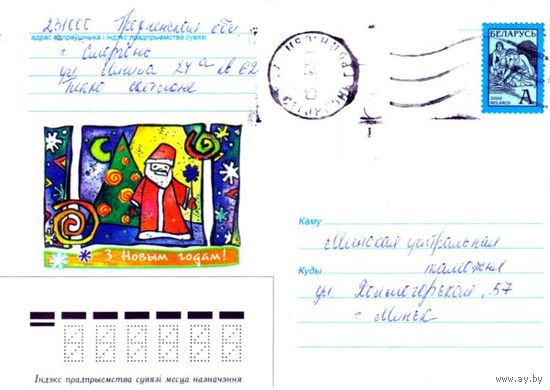 231000 Гродненская обл.
адрас адпраўшчыка і індэкс прадпрыемства сувязі
г. Сморгонь
ул. 24а кв 62
Светлане
БЕЛАРУСЬ
2000 A
BELARUS
З Новым годам!
Каму
Минская центральная
таможня
Куды
ул. Холмогорская, 57
г. Минск
Індэкс прадпрыемства сувязі месца назначэння
www.ay.by